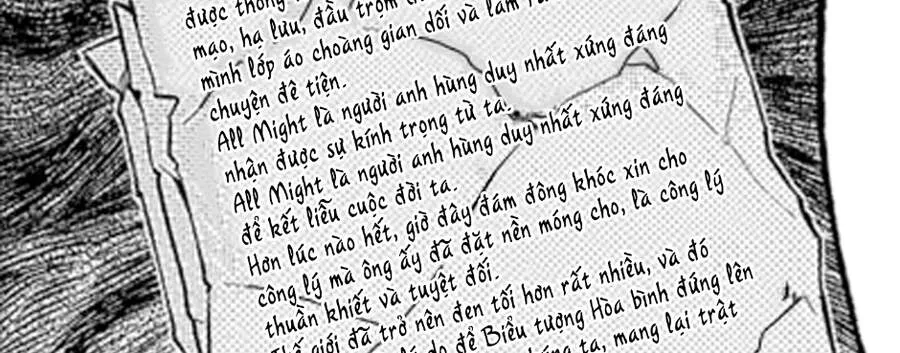 được thông
mạo, hạ lưu, đầu trộm
mình lốp áo choàng gian dối và làm
chuyện đê tiện.
All Might là người anh hùng duy nhất xứng đáng
nhận được sự kính trọng từ ta.
All Might là người anh hùng duy nhất xứng đáng
để kết liễu cuộc đời ta.
Hơn lúc nào hết, giờ đây đám đông khóc xin cho
công lý mà ông ấy đã đặt nền móng cho, là công lý
thuần khiết và tuyệt đối.
Thế giới đã trở nên đen tối hơn rất nhiều, và đó
do để Biểu tượng Hòa bình đứng lên
ta, mang lại trật